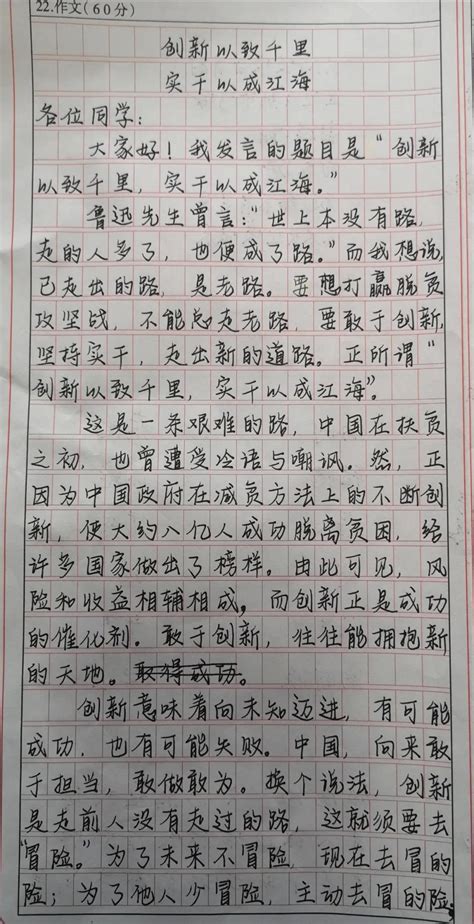 22.作文(60分)
创新以致千里
实干以成江海
各位同学:
大家好！我发言的题目是“创新
以致千里，实干以成江海。”
鲁迅先生曾言:“世上本没有路，
走的人多了，也便成了路。”而我想说，
已走出的路，是老路。要想打赢脱贫
攻坚战，不能总走老路，要敢于创新，
坚持实干，走出新的道路。正所谓“
创新以致千里，实干以成江海”。
这是一条艰难的路，中国在扶贫
之初，也曾遭受冷语与嘲讽。然，正
因为中国政府在减贫方法上的不断创
新，使大约八亿人成功脱离贫困，给
许多国家做出了榜样。由此可见，风
险和收益相辅相成，而创新正是成功
的催化剂。敢于创新，往往能拥抱新
的天地。取得成功。
创新意味着向未知迈进，有可能
成功，也有可能失败。中国，向来敢
于担当，敢做敢为。换个说法，创新
是走前人没有走过的路，这就须要去
“冒险。”为了未来不冒险，现在去冒的
险；为了他人少冒险，主动去冒的险；